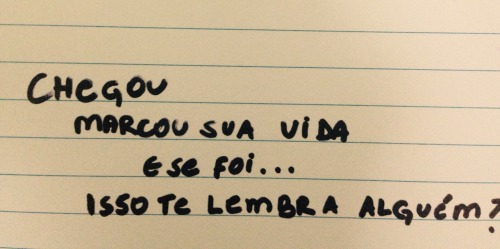 CHEGOU
MARCOU SUA VIDA
E SE FOI...
ISSO TE LEMBRA ALGUÉM?